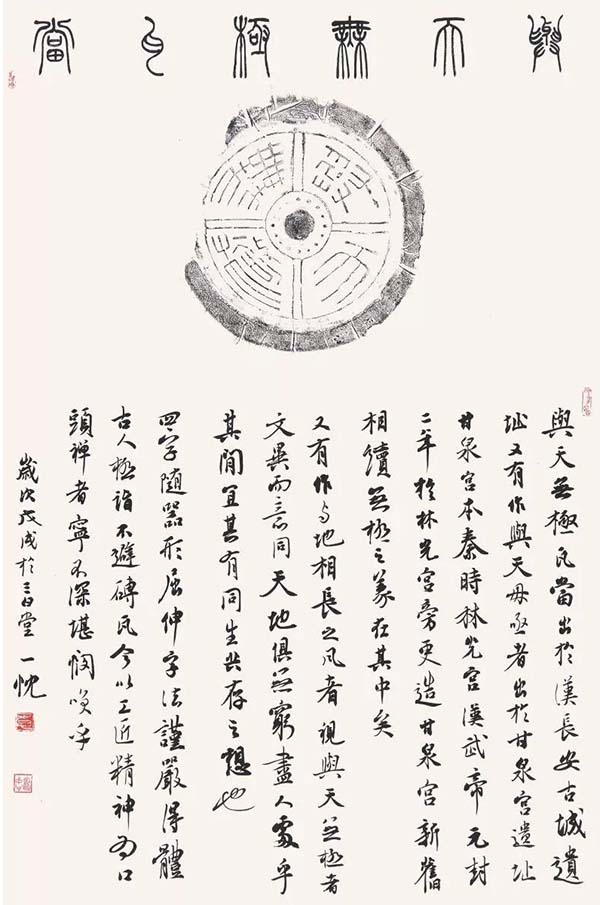 與天無極瓦當
與天無極
與天無極瓦當出於漢長安古城遺
址又有作與天毋亟者出於甘泉宮遺址
甘泉宮本秦時林光宮漢武帝元封
二年於林光宮旁更造甘泉宮新舊
相續無極之義在其中矣
又有作与地相長之瓦者視與天無極者
文異而意同天地俱無窮盡人處乎
其間宜其有同生共存之想也
四字隨器形屈伸字法謹嚴得體
古人極詣不避磚瓦今以工匠精神為口
頭禪者寧不深堪憫咲乎
歲次戊戌於三堂一忱